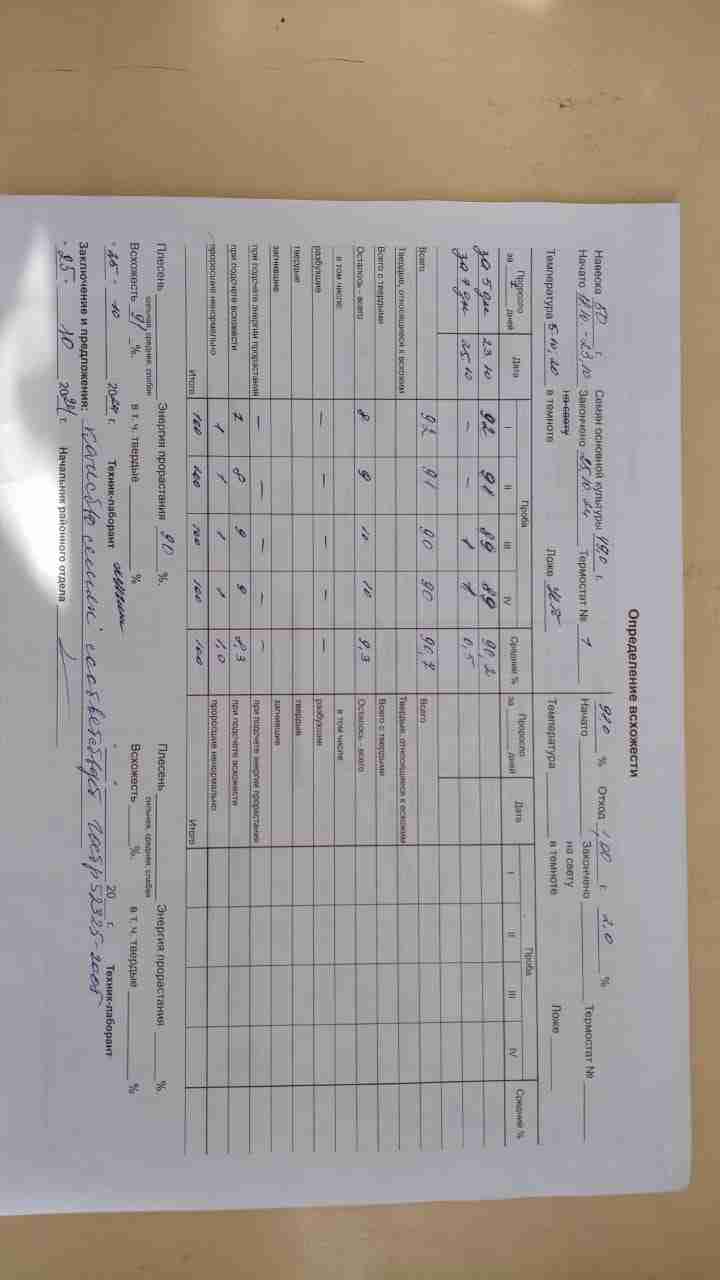 Определение всхожести
Навеска 50 г. Семян основной культуры 49,0 г. 98,0 % Отход 1,00 г. 2,0 %
Начато 18.10.-23.10 Закончено 25.10.24 Термостат № 1 Начато Закончено Термостат №
на свету на свету
Температура в темноте Ложе Температура в темноте Ложе
Проросло за 7 дней Дата Проба Средний % Проросло за дней Дата Проба Средний %
I II III IV I II III IV
За 5 дн 23.10 92 91 89 89 90,2
За 7 дн 25.10 – – 1 1 0,5
Всего 92 91 90 90 90,7 Всего
Твердые, относящиеся к всхожим Твердые, относящиеся к всхожим
Всего с твердыми Всего с твердыми
Осталось - всего 8 9 10 10 9,3 Осталось - всего
в том числе: в том числе:
разбухшие – – – – разбухшие
твердые твердые
загнившие загнившие
при подсчете энергии прорастания – – – – – при подсчете энергии прорастания
при подсчете всхожести 7 8 9 9 8,3 при подсчете всхожести
проросшие ненормально 1 1 1 1 1,0 проросшие ненормально
Итого 100 100 100 100 100 Итого
Плесень Энергия прорастания 90 %. Плесень Энергия прорастания %.
сильная, средняя, слабая сильная, средняя, слабая
Всхожесть 91 %. в т. ч. твердые % Всхожесть %. в т. ч. твердые %
"25" 10 2024 г. Техник-лаборант " " 20 г. Техник-лаборант
Заключение и предложения: качество семян соответствует ГОСТ Р 52325-2005
"25" 10 2024 г. Начальник районного отдела